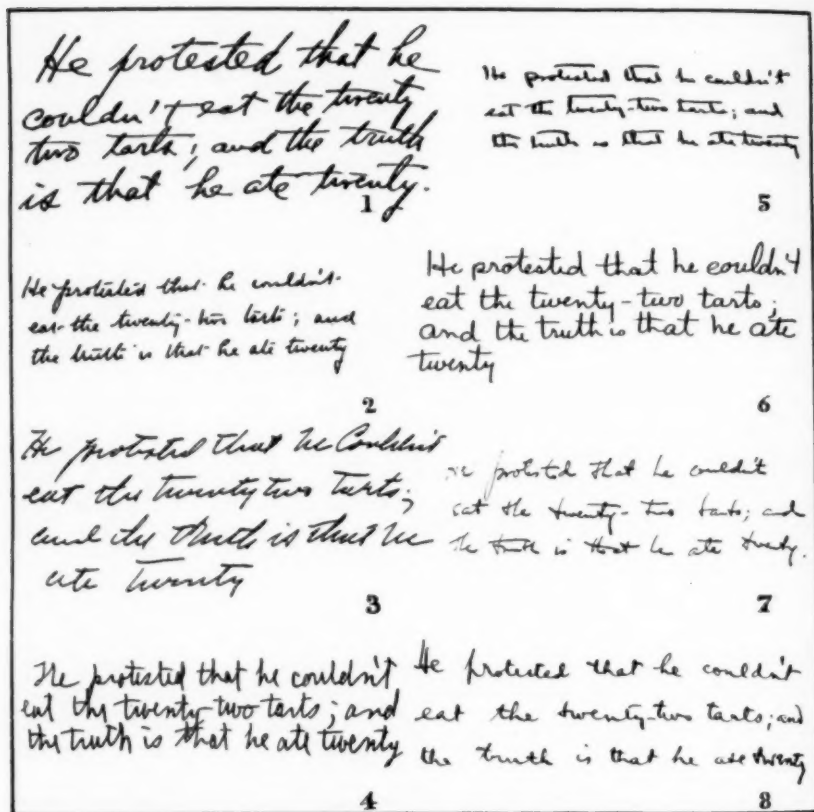 He protested that he
couldn't eat the twenty
two tarts; and the truth
is that he ate twenty.
1
He protested that he couldn't
eat the twenty-two tarts; and
the truth is that he ate twenty
2
He protested that he Couldn't
eat the twenty two tarts;
and the truth is that he
ate twenty
3
He protested that he couldn't
eat the twenty-two tarts; and
the truth is that he ate twenty
4
He protested that he couldn't
eat the twenty-two tarts; and
the truth is that he ate twenty
5
He protested that he couldn't
eat the twenty-two tarts;
and the truth is that he ate
twenty
6
He protested that he couldn't
eat the twenty-two tarts; and
the truth is that he ate twenty.
7
He protested that he couldn't
eat the twenty-two tarts; and
the truth is that he ate twenty
8